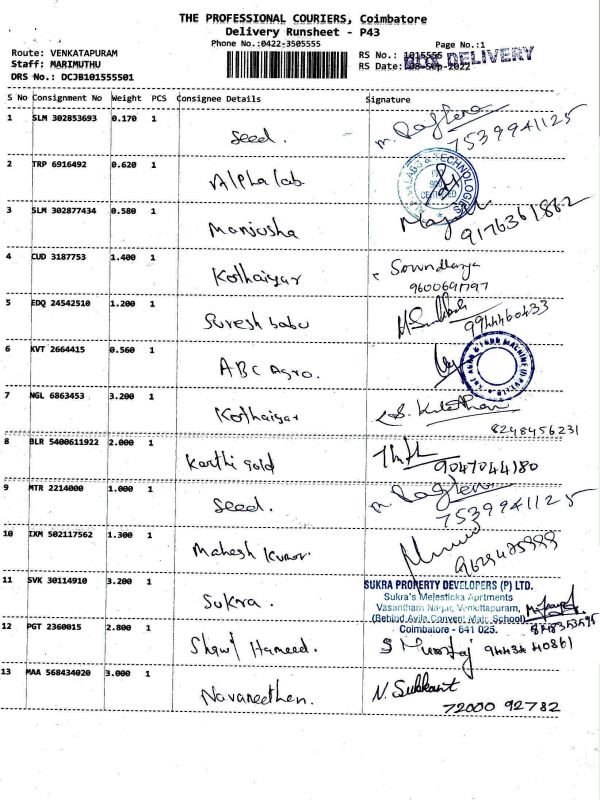 THE PROFESSIONAL COURIERS, Coimbatore
Delivery Runsheet - P43
Phone No.:0422-3505555
Page No.:1
Route: VENKATAPURAM
RS No.: 1015555
BOX DELIVERY
Staff: MARIMUTHU
RS Date: 08-Sep-2022
DRS No.: DCJB101555501
S No Consignment No Weight PCS Consignee Details Signature
1 SLM 302853693 0.170 1 Seed. 7539941125
2 TRP 6916492 0.620 1 Alpha lab.
LABS & TECHNOLOGIES
3 SLM 302877434 0.580 1 Manjusha 9176361862
4 CUD 3187753 1.400 1 Kothaiyar Sowndharya
9600691797
5 EDQ 24542510 1.200 1 Suresh babu 9944460433
6 KVT 2664415 0.560 1 ABC Agro.
7 NGL 6863453 3.200 1 Kothaiyar
8248456231
8 BLR 5400611922 2.000 1 Karthi gold 9047044180
9 MTR 2214000 1.000 1 Seed. 7539941125
10 IXM 502117562 1.300 1 Mahesh Kumar.
11 SVK 30114910 3.200 1 Sukra.
SUKRA PROPERTY DEVELOPERS (P) LTD.
Sukra's Majesticka Aprtments
Vasantham Nagar, Venkittapuram,
(Behind Avila Convent Matr. School)
Coimbatore - 641 025.
12 PGT 2360015 2.800 1 Hameed.
13 MAA 568434020 3.000 1 Navaneethan. N. Sukkant
72000 92782